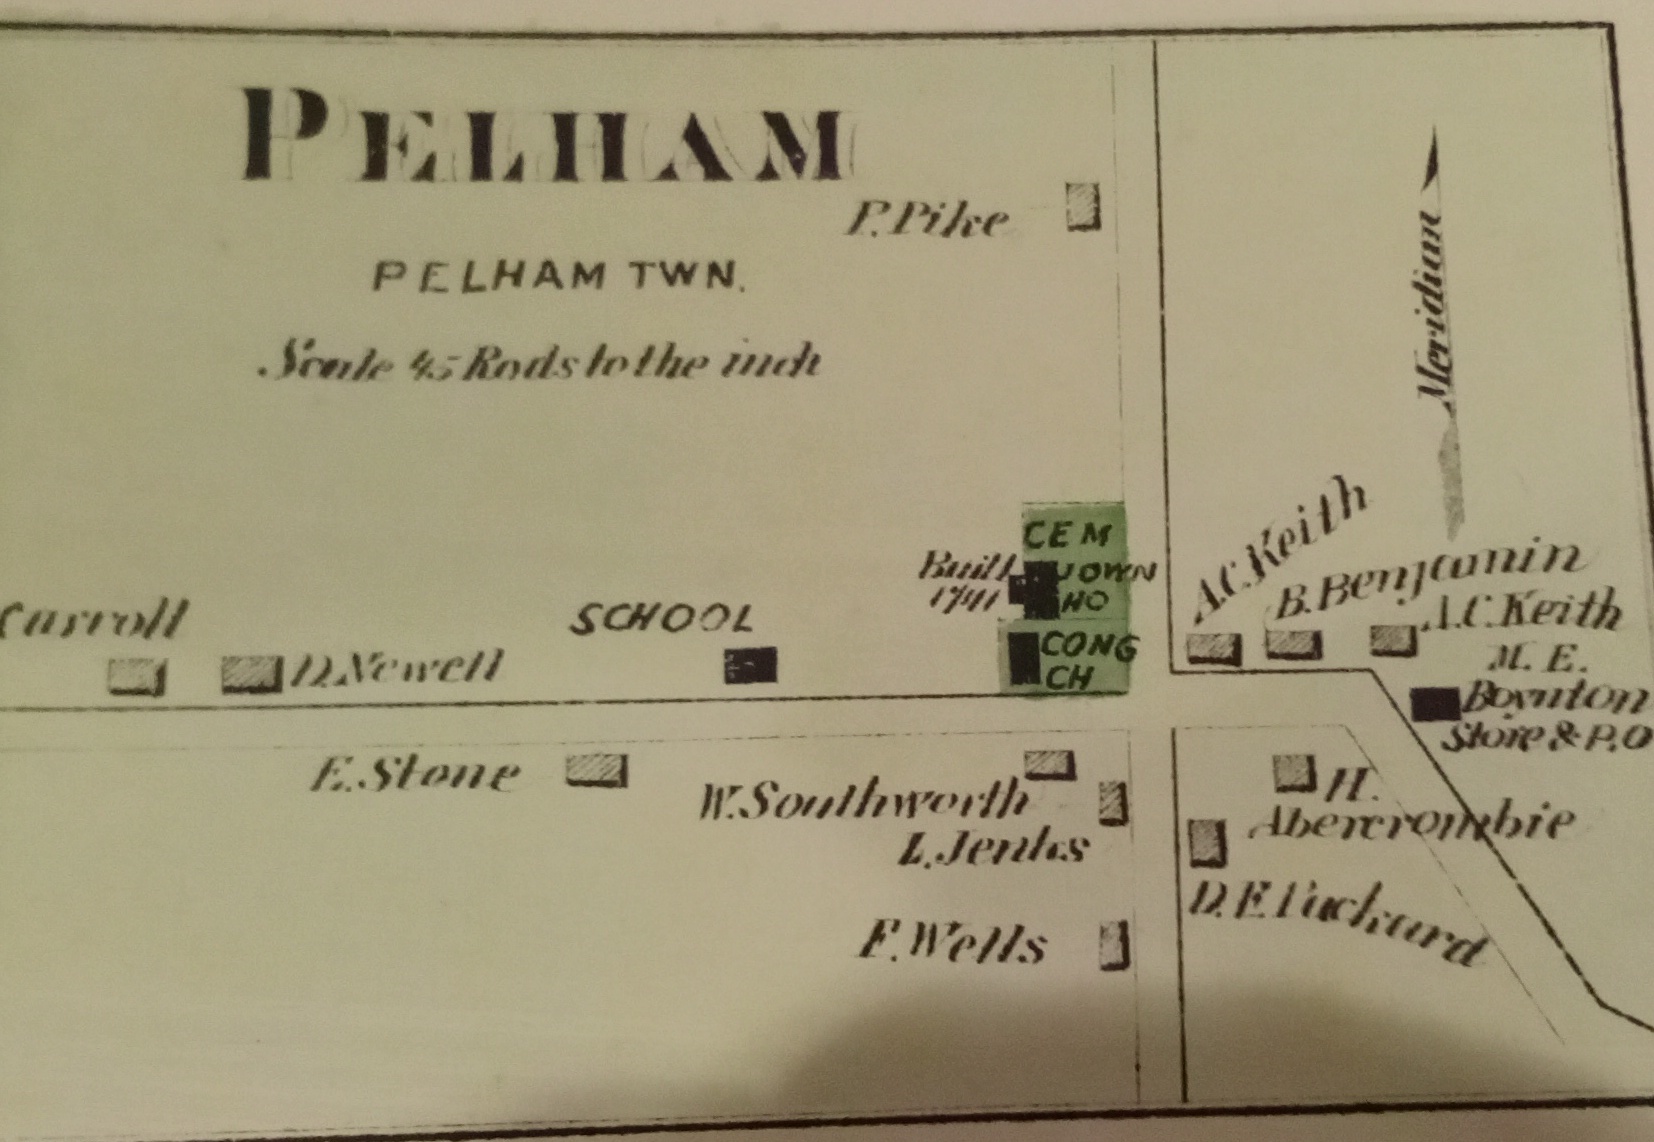 PELHAM
P. Pike
PELHAM TWN.
Scale 45 Rods to the inch
Meridian
CEM
Built
1741
TOWN
HO
A.C. Keith
B. Benjamin
A.C. Keith
Carroll
SCHOOL
D. Newell
CONG
CH
M. E.
Boynton
Store & P.O
E. Stone
W. Southworth
L. Jenks
H.
Abercrombie
D. F. Packard
F. Wells